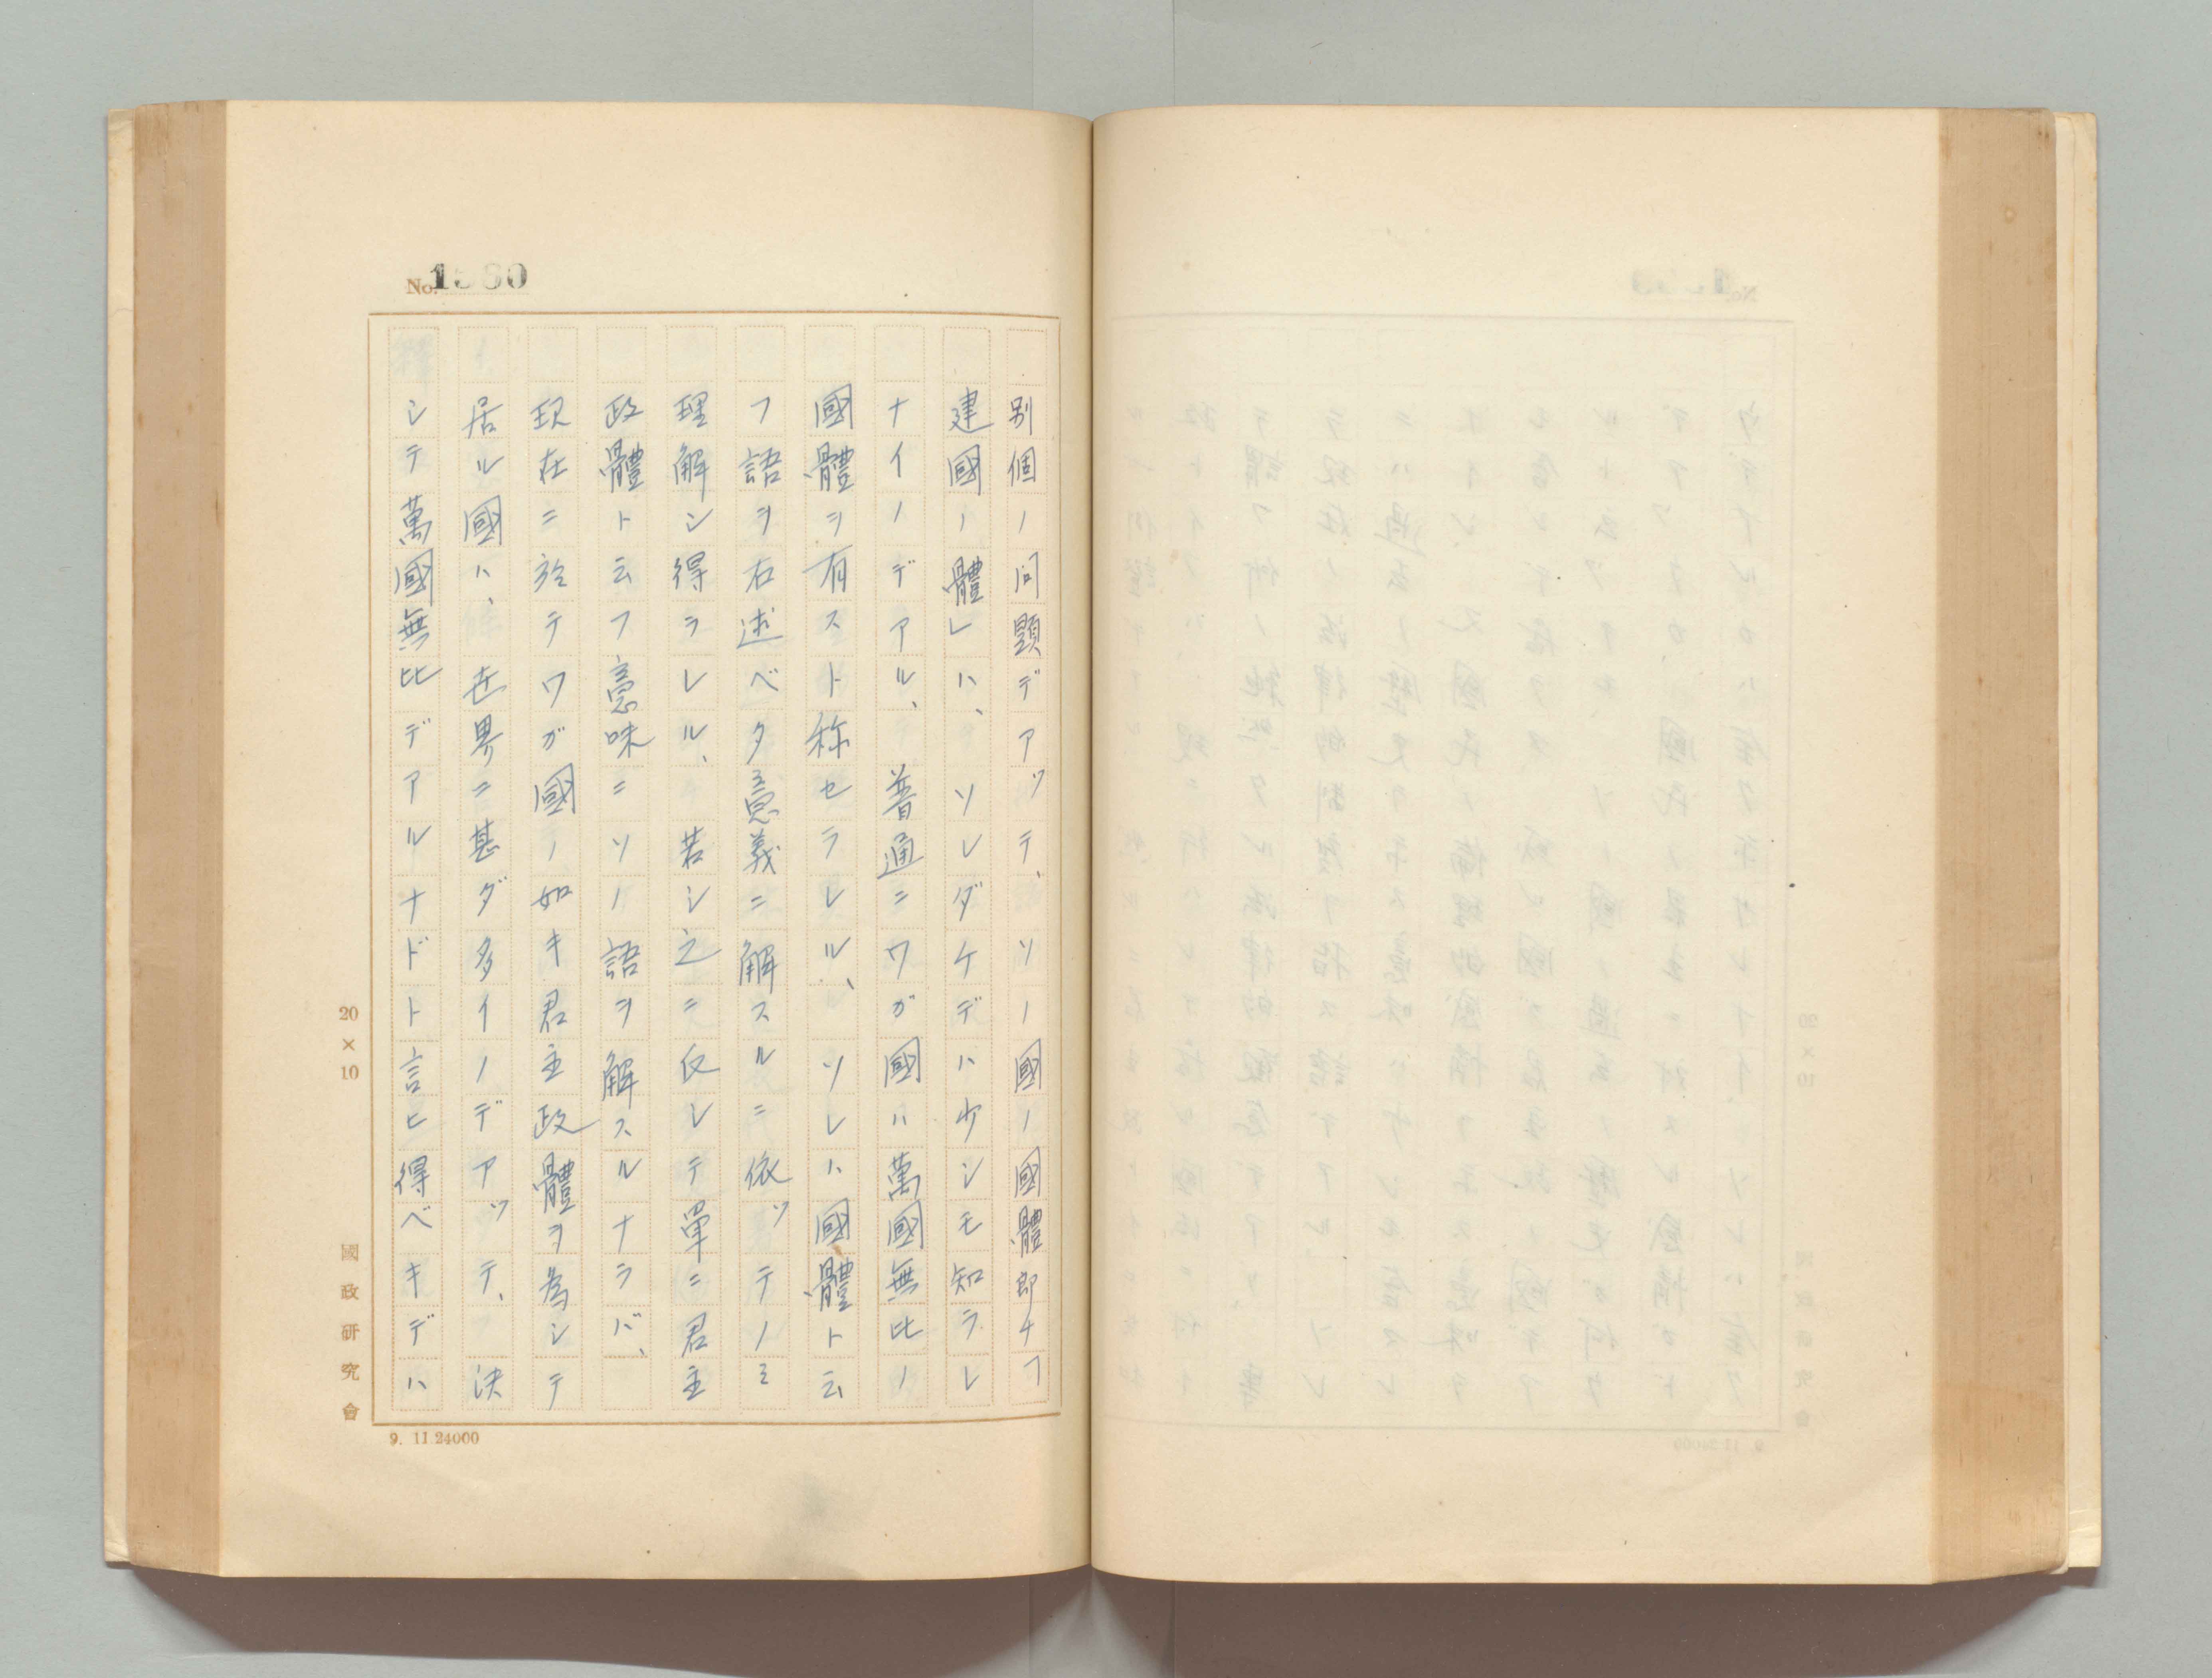 No.1580
別個ノ問題デアツテ、ソノ國ノ國體即チ「
建國ノ體」ハ、ソレダケデハ少シモ知ラレ
ナイノデアル、普通ニワガ國ハ萬國無比ノ
國體ヲ有スト称セラレル、ソレハ國體ト云
フ語ヲ右述ベタ意義ニ解スルニ依ツテノミ
理解シ得ラレル、若シ之ニ反シテ單ニ君主
政體ト云フ意味ニソノ語ヲ解スルナラバ、
現在ニ於テワガ國ノ如キ君主政體ヲ為シテ
居ル國ハ、世界ニ甚ダ多イノデアツテ、決
シテ萬國無比デアルナドト言ヒ得ベキデハ
20×10
國政研究會
9. 11.24000